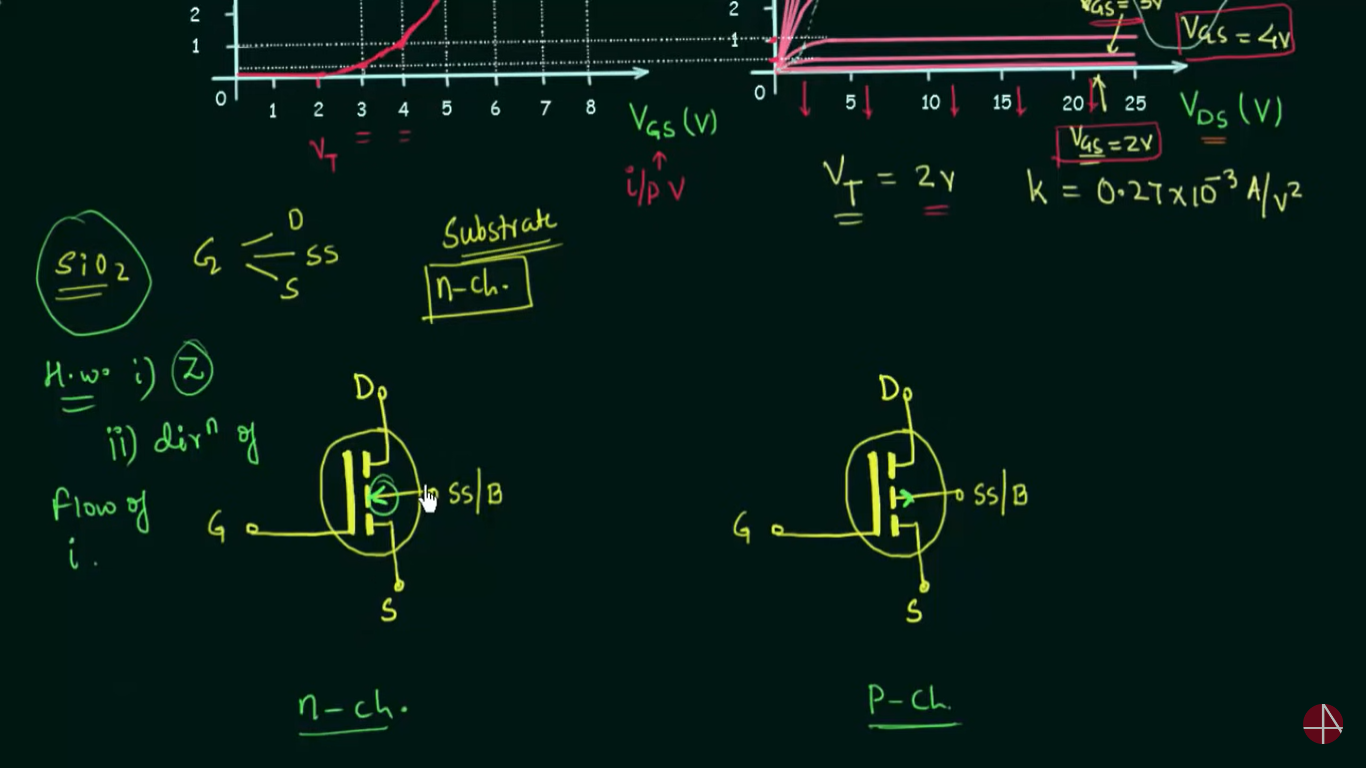 2
1
0
1 2 3 4 5 6 7 8
V_T = =
V_GS (V)
i/p V
2
1
0
5 10 15 20 25
V_GS = 4V
V_GS = 2V
V_DS (V)
V_T = 2V
k = 0.27×10⁻³ A/V²
SiO₂
G
D
SS
S
Substrate
n-ch.
H.W. i) Z
ii) dirⁿ of
flow of
i.
D
G
SS/B
S
n-ch.
D
G
SS/B
S
P-Ch.